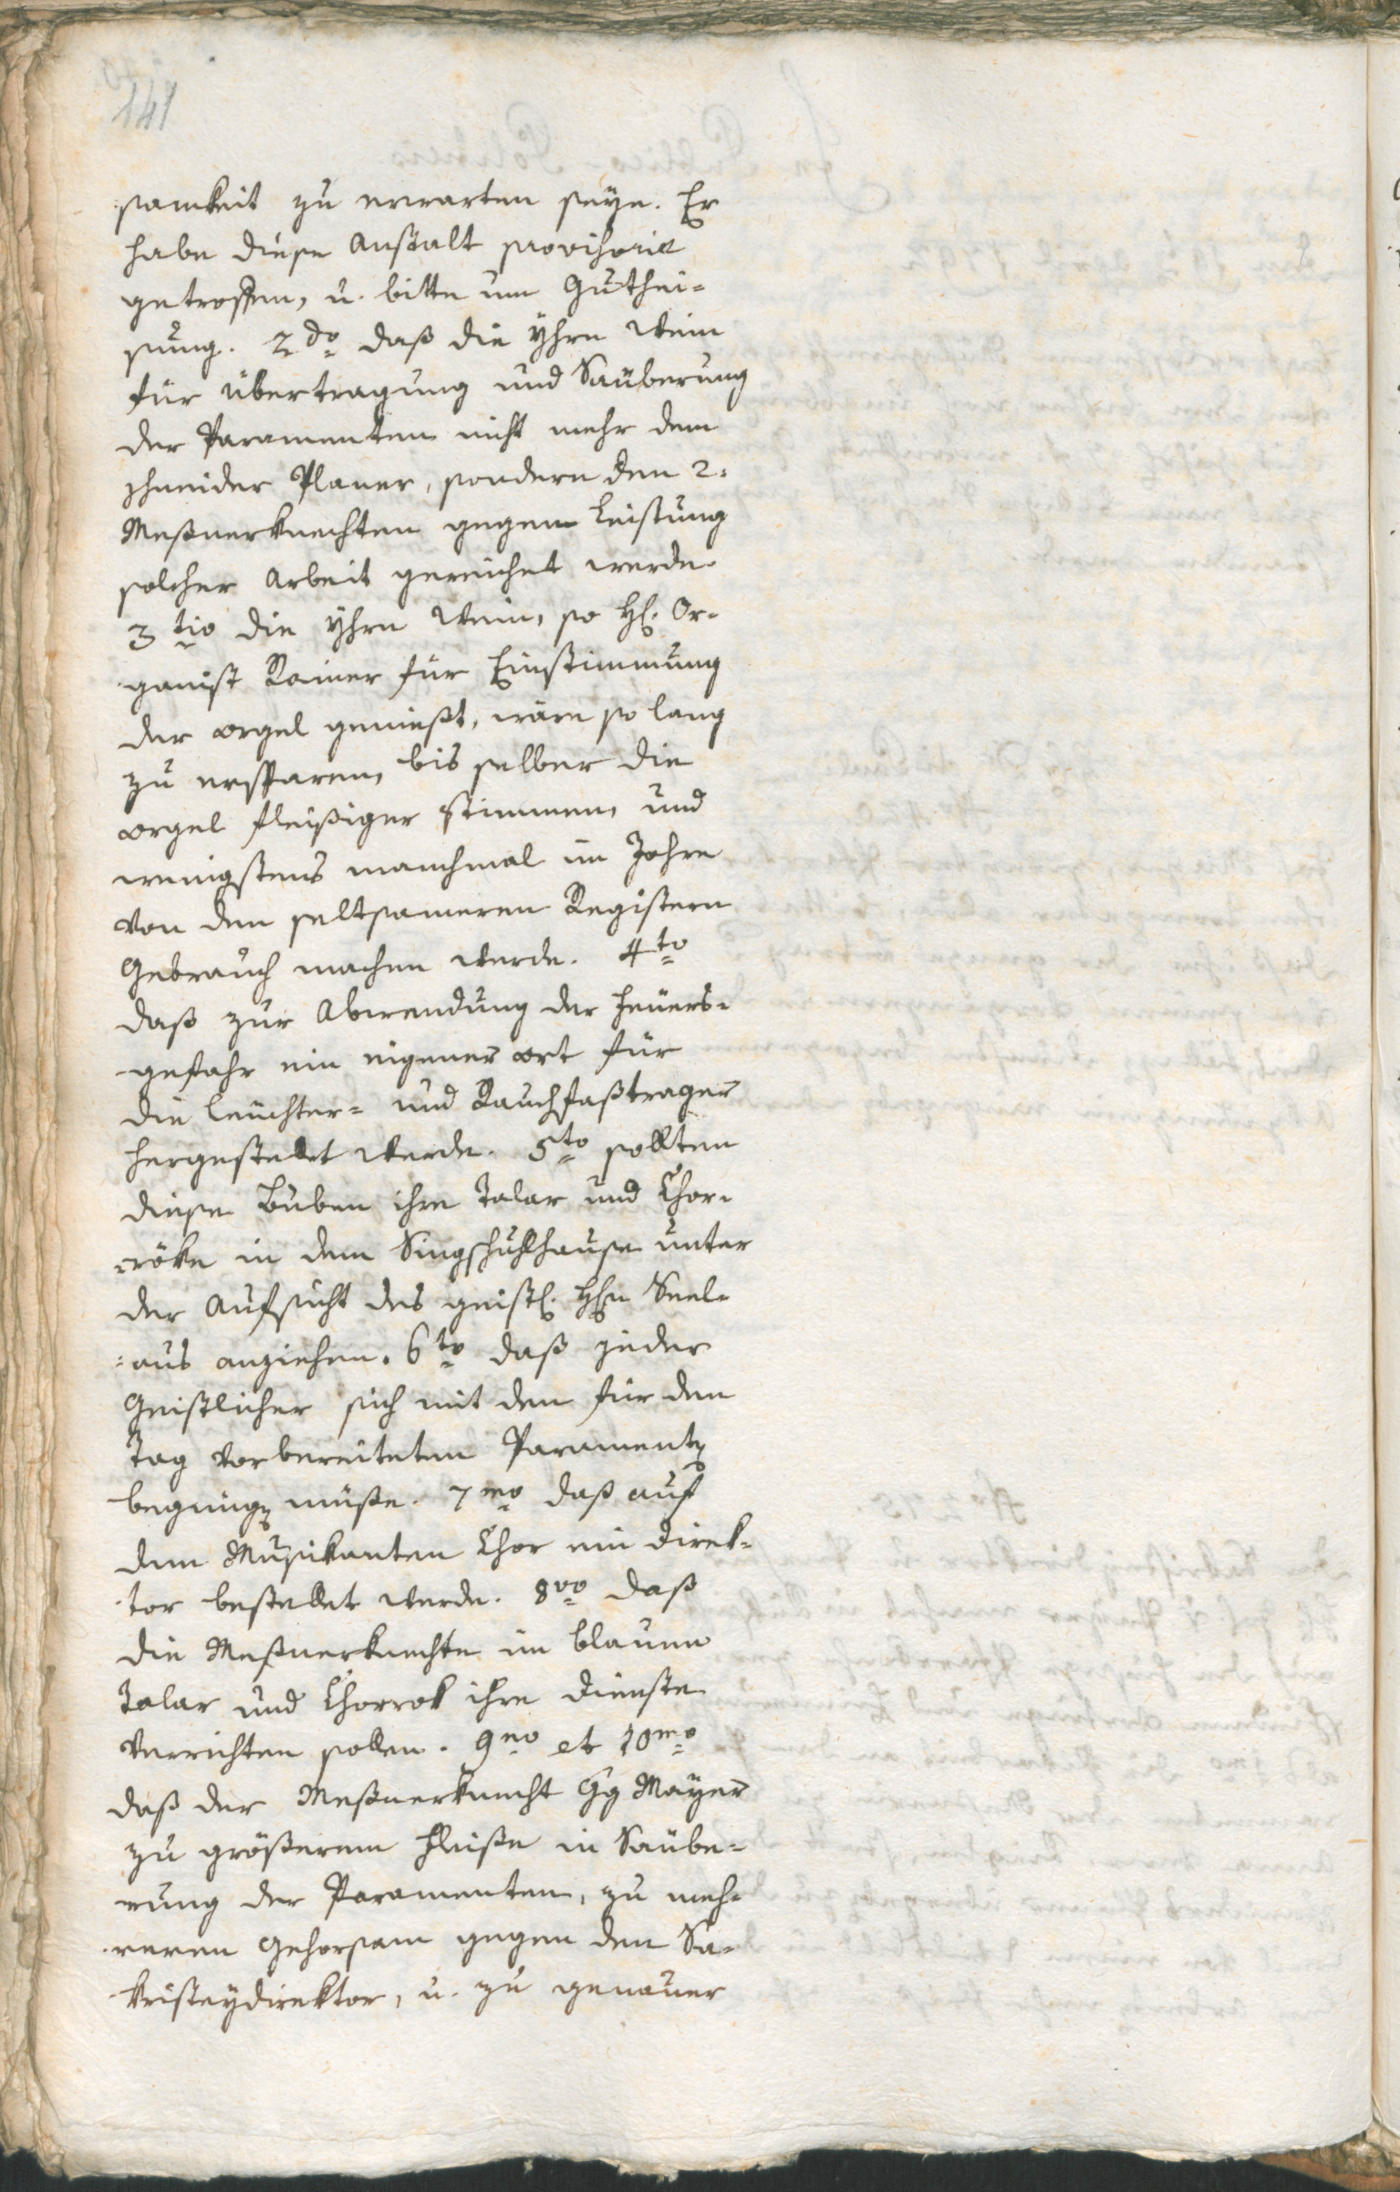 141
samkeit zu erwarten seÿe. Er
habe diese Anstalt provisorie
getroffen, u. bitte um Guthei-
sung. 2do daß die Yhrn Wein
für Übertragung und Säuberung
der Paramenten nicht mehr dem
schneider Planer, sondern den 2.
Meßnerknechten gegen Leistung
solcher Arbeit gereichet werde.
3tio die Yhrn Wein, so H. Or-
ganist Rainer für Einstimmung
der orgel genießt, wäre so lang
zu ersparen, bis selber die
orgel fleißiger stimmen, und
wenigstens manchmal im Jahre
von den seltsameren Registern
Gebrauch machen werde. 4to
daß zur Abwendung der Feuers-
gefahr ein eigener ort für
die Leuchter- und Rauchfaßtrager
hergestellet werde. 5to sollten
diese Buben ihre Talar und Chor-
röke in dem Singschulhause unter
der Aufsicht des geistl. Hhn Seel-
aus anziehen. 6to daß jeder
Geistlicher sich mit den für den
Tag vorbereiteten Paramenten
begnügen müße. 7mo daß auf
dem Musikanten Chor ein Direk-
tor bestellet werde. 8vo daß
die Meßnerknechte im blauen
Talar und Chorrok ihre Dienste
verrichten sollen. 9no et 10mo
daß der Meßnerknecht Gg Maÿer
zu größerem Fleiße in Säube-
rung der Paramenten, zu meh-
reren Gehorsam gegen den Sa-
kristeÿdirektor, u. zu genauer